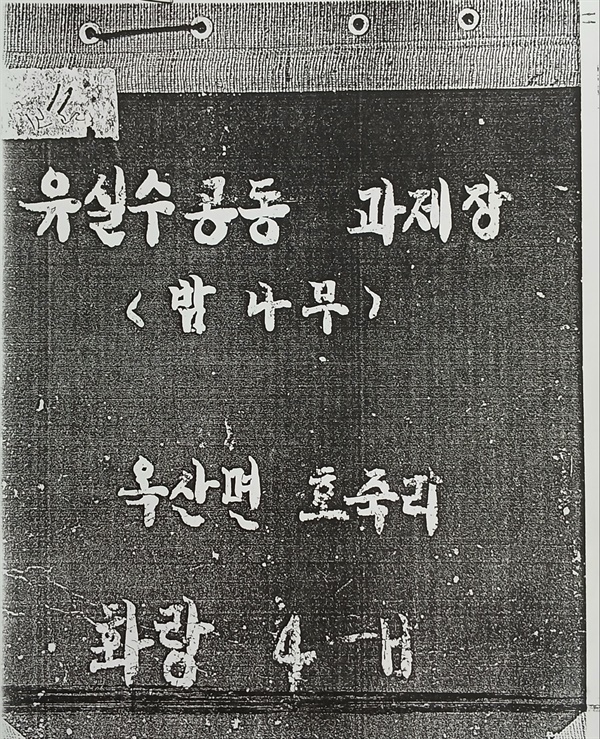 유실수공동 과제장
<밤나무>
옥산면 호죽리
화랑 4-H